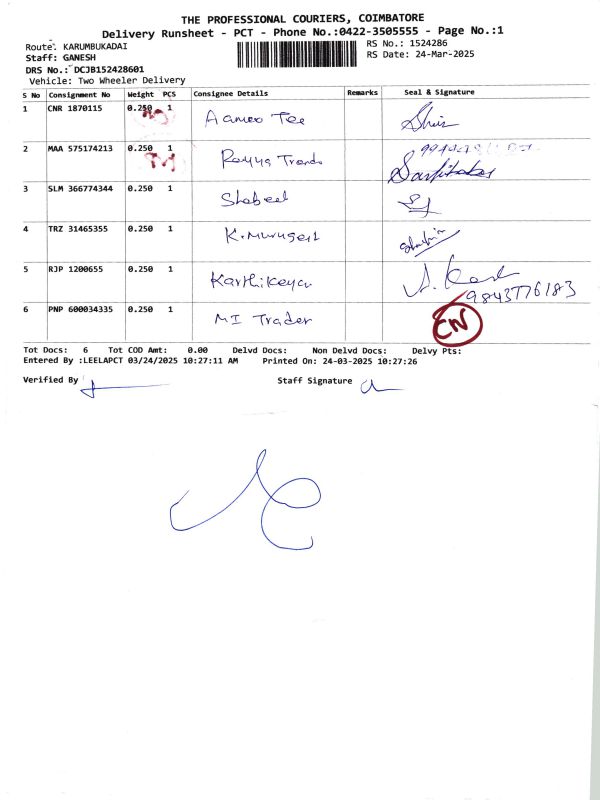 THE PROFESSIONAL COURIERS, COIMBATORE
Delivery Runsheet - PCT - Phone No.:0422-3505555 - Page No.:1
Route. KARUMBUKADAI
RS No.: 1524286
Staff: GANESH
RS Date: 24-Mar-2025
DRS No.: DCJB152428601
Vehicle: Two Wheeler Delivery
S No Consignment No Weight PCS Consignee Details Remarks Seal & Signature
1 CNR 1870115 0.250 1
2 MAA 575174213 0.250 1
3 SLM 366774344 0.250 1 Shabeel
4 TRZ 31465355 0.250 1 K.Murugesh
5 RJP 1200655 0.250 1 Karthikeyan
9843776183
6 PNP 600034335 0.250 1 MI Trader CN
Tot Docs: 6 Tot COD Amt: 0.00 Delvd Docs: Non Delvd Docs: Delvy Pts:
Entered By :LEELAPCT 03/24/2025 10:27:11 AM Printed On: 24-03-2025 10:27:26
Verified By Staff Signature